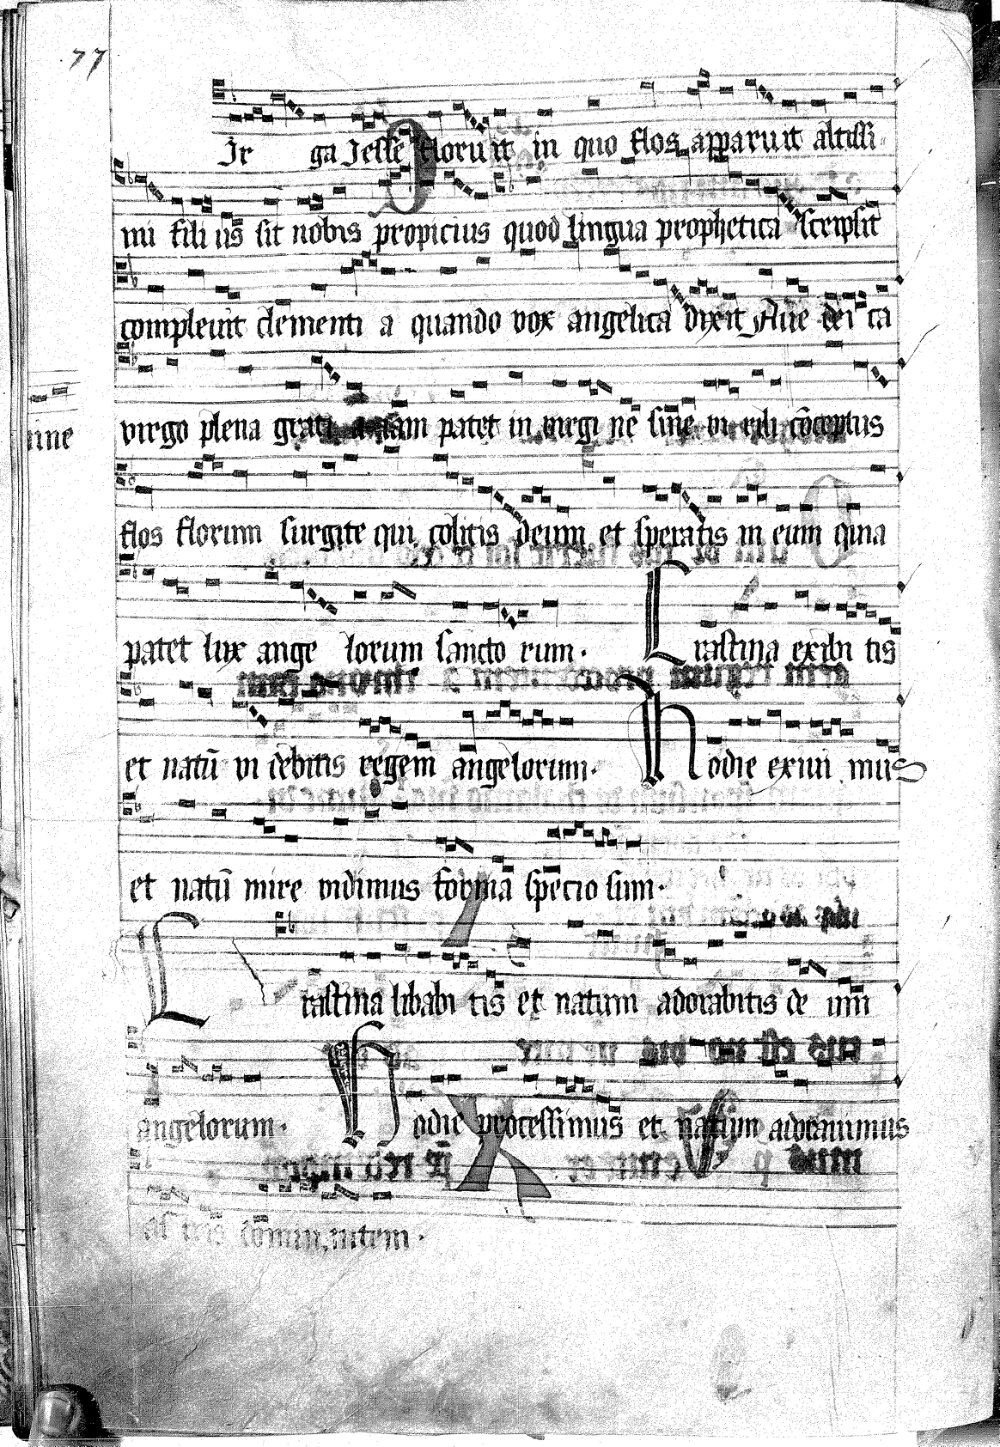 77
Ir ga Jesse floruit in quo flos apparuit altissi
mi fili us sit nobis propicius quod lingua prophetica scripsit
compleuit clementi a quando vox angelica dixit Aue dei ca
virgo plena patet in virgi ne sine vi cōceptus
nine
flos florum surgite qui colitis deum et speratis in eum quia
patet lux ange lorum sancto rum. Crastina exibi tis
et natū vi debitis regem angelorum. Hodie exiui mus
et natū mire vidimus forma specio sum.
Crastina libabi tis et natum adorabitis de um
angelorum. Hodie processimus et natum adorauimus